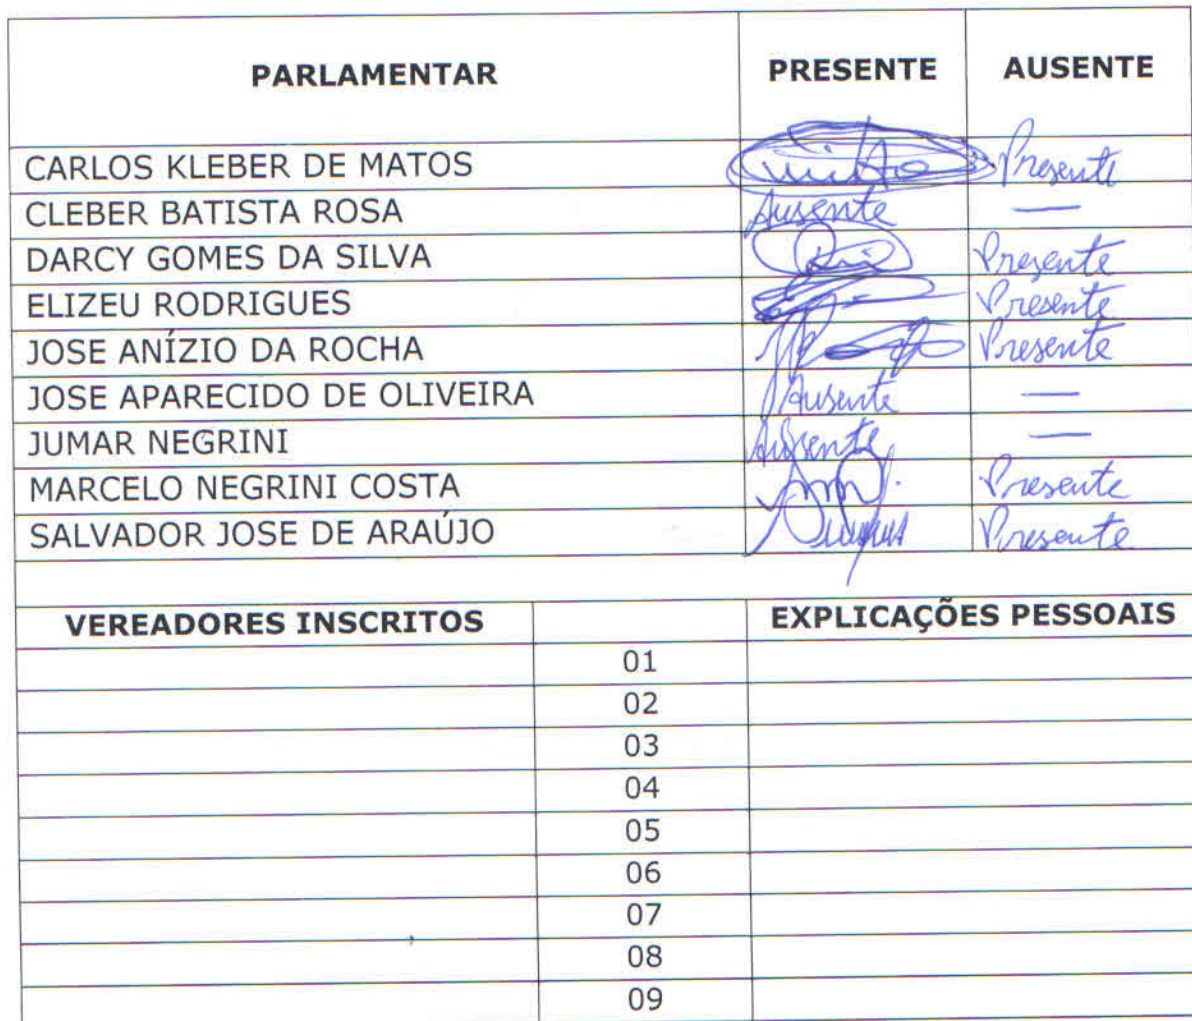 PARLAMENTAR PRESENTE AUSENTE
CARLOS KLEBER DE MATOS Presente
CLEBER BATISTA ROSA Ausente —
DARCY GOMES DA SILVA Presente
ELIZEU RODRIGUES Presente
JOSE ANÍZIO DA ROCHA Presente
JOSE APARECIDO DE OLIVEIRA Ausente —
JUMAR NEGRINI Ausente —
MARCELO NEGRINI COSTA Presente
SALVADOR JOSE DE ARAÚJO Presente
VEREADORES INSCRITOS EXPLICAÇÕES PESSOAIS
01
02
03
04
05
06
07
08
09